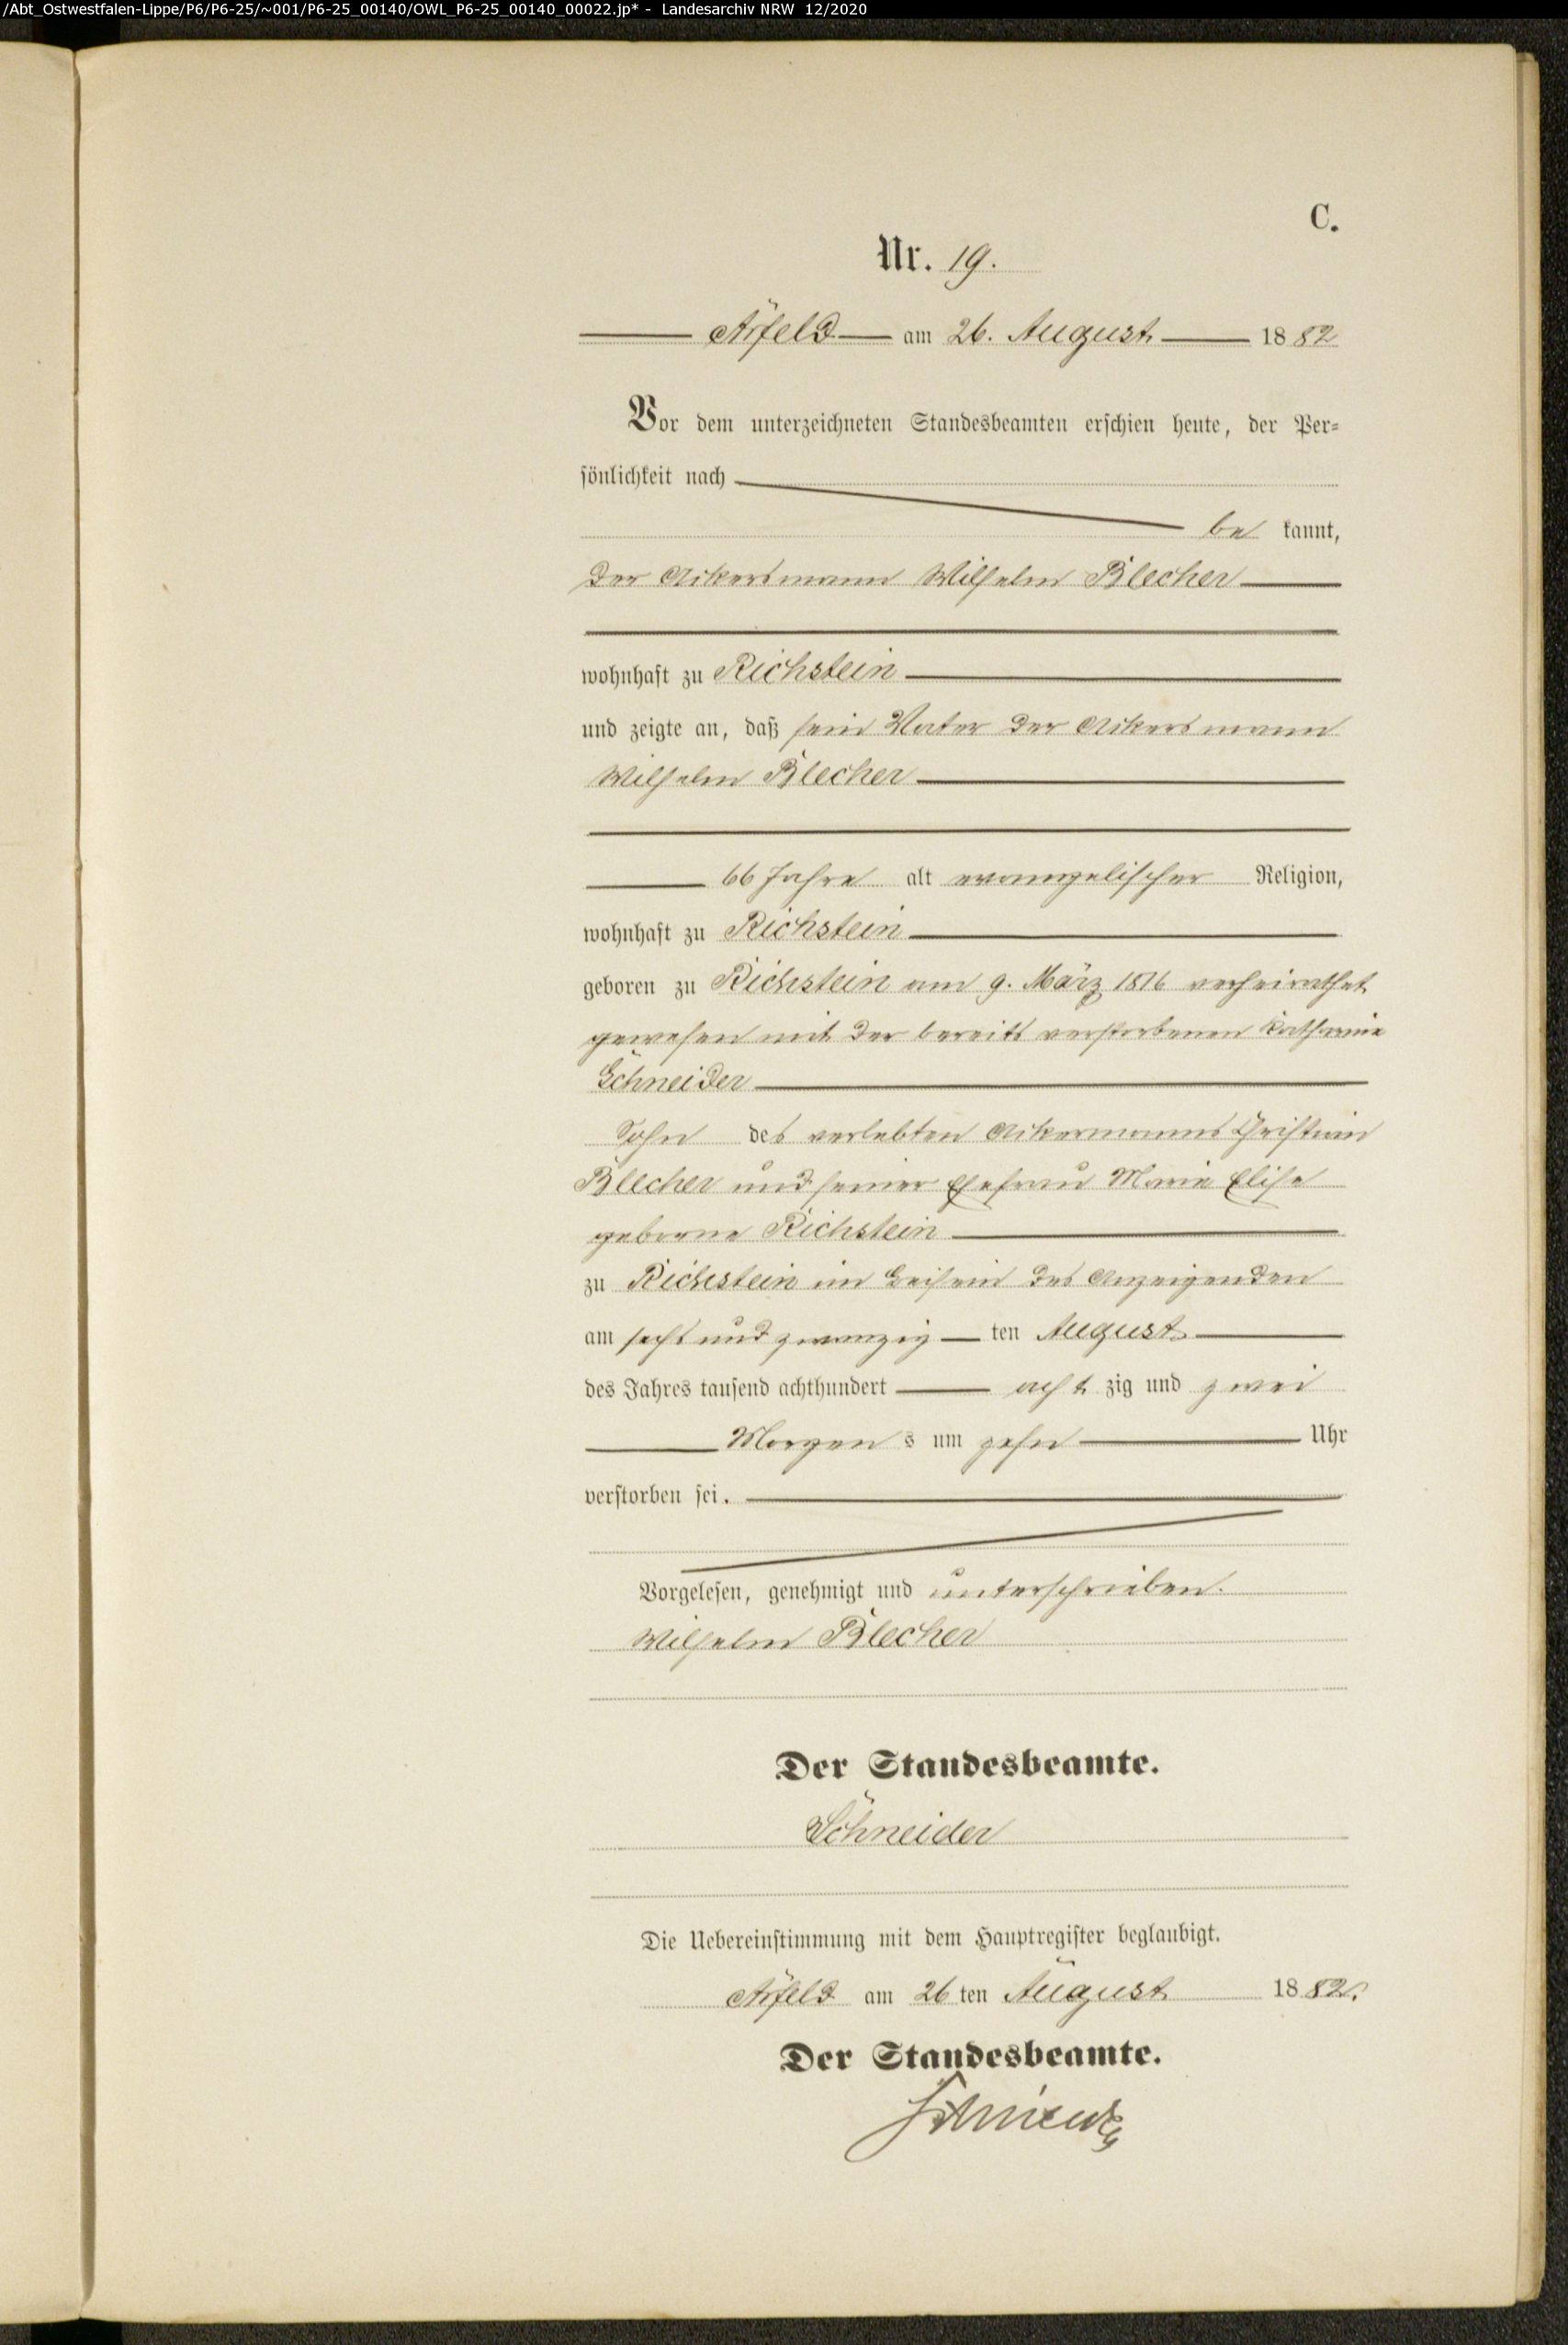 /Abt_Ostwestfalen-Lippe/P6/P6-25/~001/P6-25_00140/OWL_P6-25_00140_00022.jp* - Landesarchiv NRW 12/2020
C.
Nr. 19.
Arfeld am 26. August 1882
Vor dem unterzeichneten Standesbeamten erschien heute, der Per=
sönlichkeit nach
be kannt,
der Ackersmann Wilhelm Blecher
wohnhaft zu Richstein
und zeigte an, daß sein Vater der Ackersmann
Wilhelm Blecher
66 Jahre alt evangelischer Religion,
wohnhaft zu Richstein
geboren zu Richstein am 9. März 1816 verheirathet
gewesen mit der bereits verstorbenen Katharine
Schneider
Sohn des verlebten Ackermanns Christian
Blecher und seiner Ehefrau Marie Elise
geborne Richstein
zu Richstein im Beisein des Anzeigenden
am sechs und zwanzig ten August
des Jahres tausend achthundert acht zig und zwei
Morgen s um zehn Uhr
verstorben sei.
Vorgelesen, genehmigt und unterschrieben.
Wilhelm Blecher
Der Standesbeamte.
Schneider
Die Uebereinstimmung mit dem Hauptregister beglaubigt.
Arfeld am 26 ten August 1882.
Der Standesbeamte.
Schneider